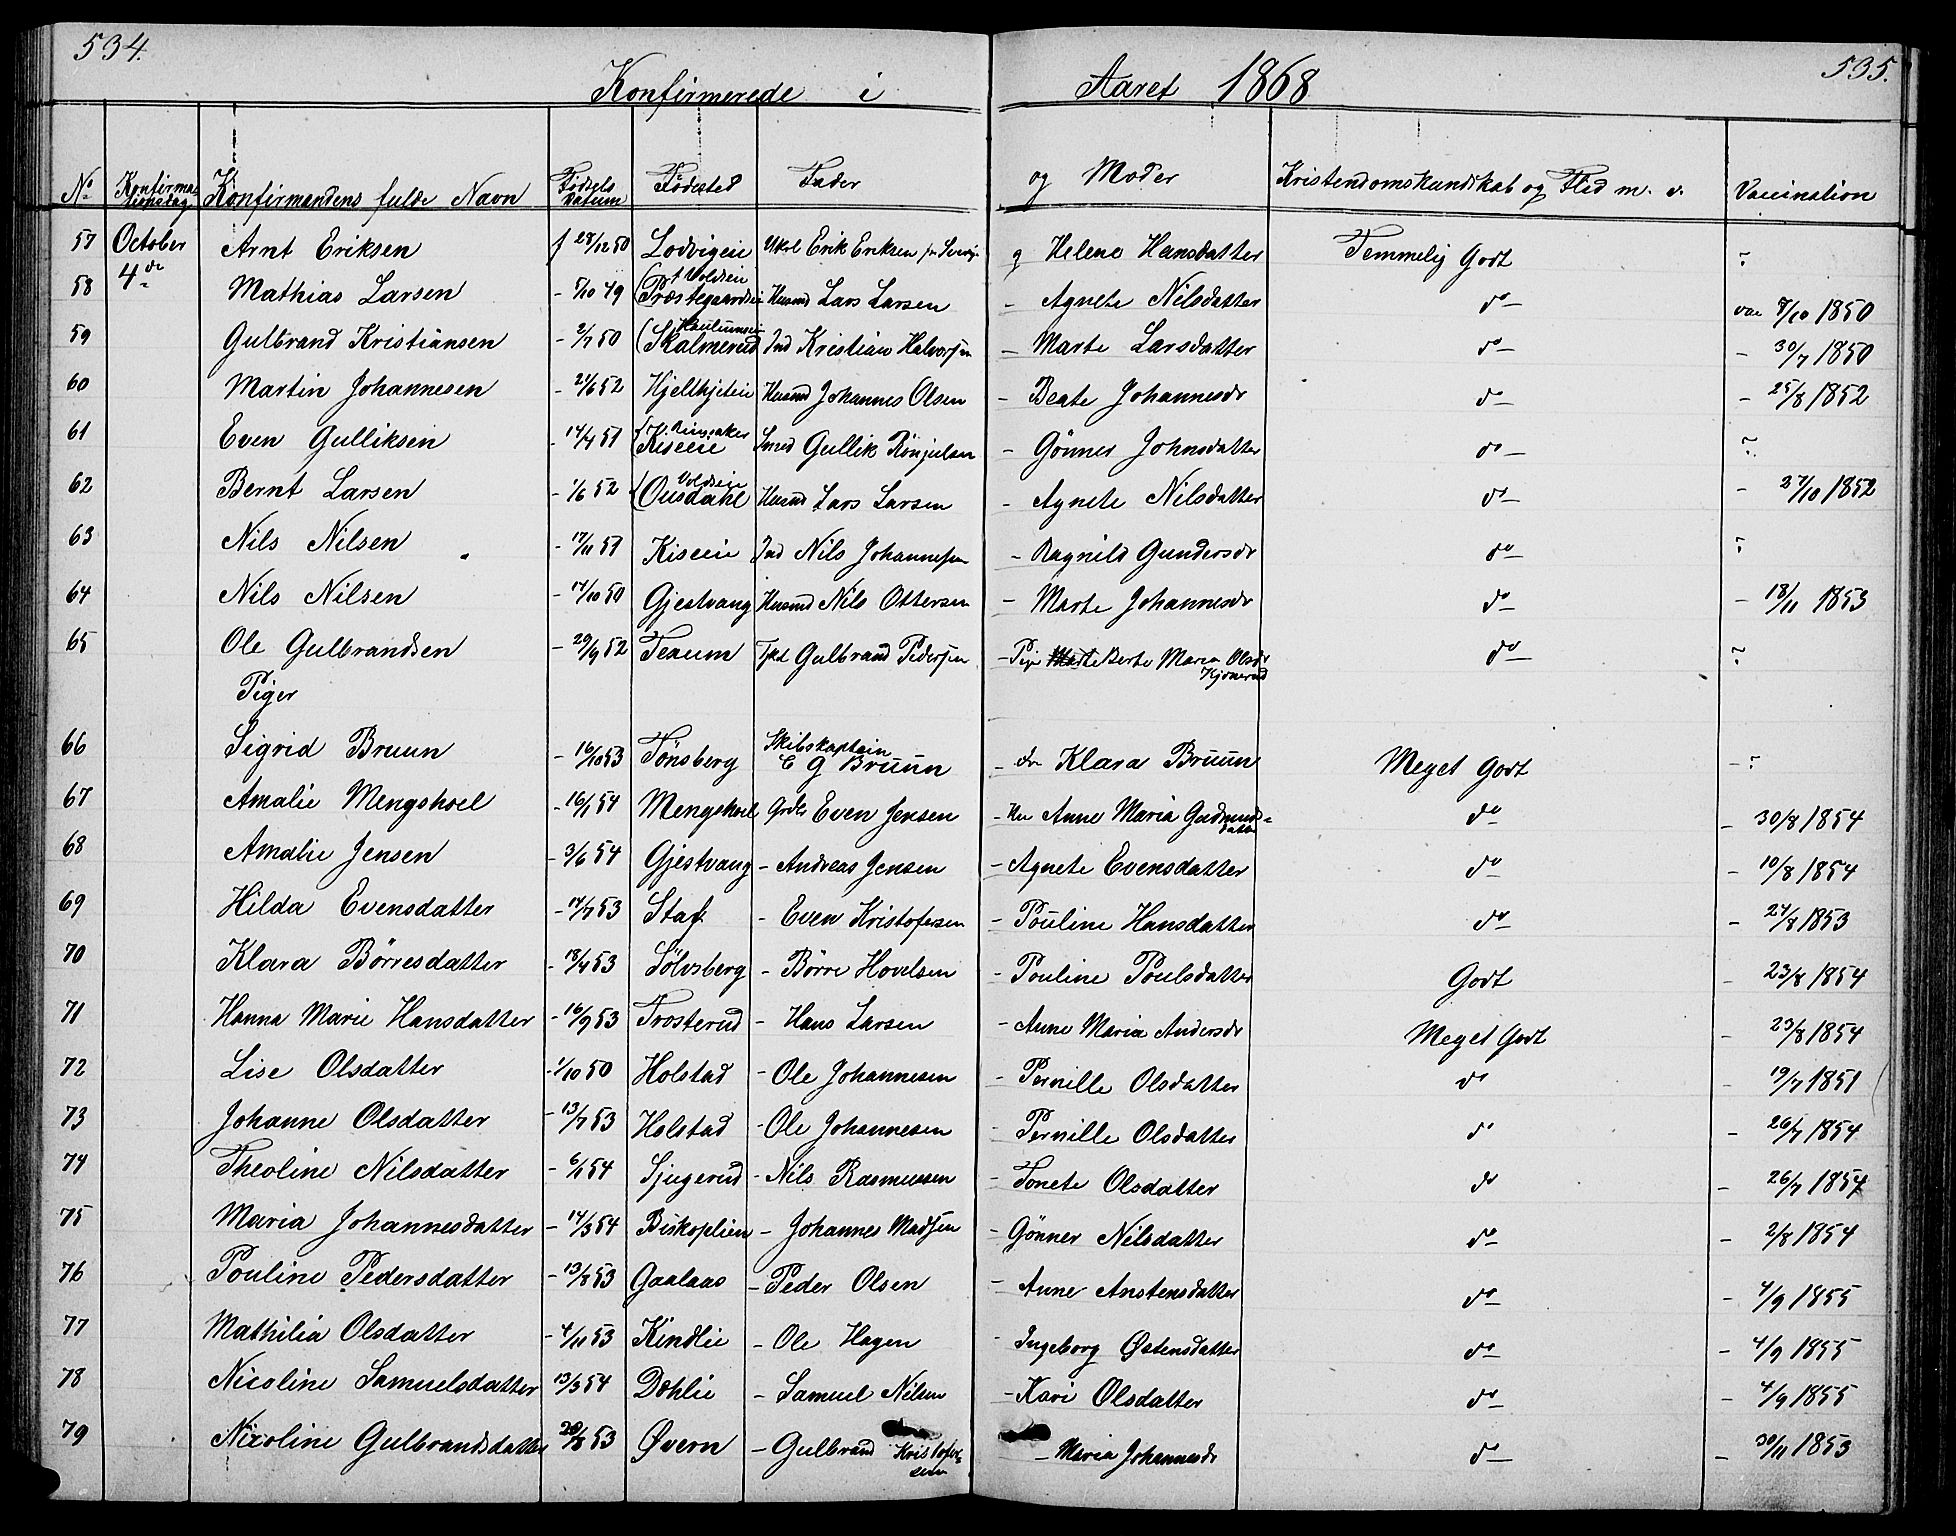 534. 535.
Konfirmerede i Aaret 1868
No Konfirmationsdag Konfirmandens fulde Navn Fødsels datum Fødested Fader og Moder Kristendomskundskab og Flid m. v. Vaccination
57 October Arnt Eriksen f 28/12 50 Lodvigeie Erik Eriksen g Helene Hansdatter Temmelig Godt ?
58 4de Mathias Larsen - 5/10 49 (Voldseie Præstegaardseie Husmd Lars Larsen - Agnete Nilsdatter do vac 8/10 1850
59 Gulbrand Kristiansen - 2/7 50 (Skalmerud Ind Kristian Halvorsen - Marte Larsdatter do - 30/7 1850
60 Martin Johannesen - 21/6 52 Hjelthjteie Husmd Johannes Olsen - Beate Johannesdr do - 25/8 1852
61 Even Gulliksen - 14/4 51 (V. Ringsaker Kiseeie Smed Gullik Rönjulsen - Gönner Johnsdatter do - ?
62 Bernt Larsen - 1/6 52 (Voldseie Ousdahl Husmd Lars Larsen - Agnete Nilsdatter do - 27/10 1852
63 Nils Nilsen - 17/11 51 Kiseeie Ind Nils Johannesen - Ragnild Gundersdr do ?
64 Nils Nilsen - 14/10 50 Gjestvang Husmd Nils Ottersen - Marte Johannesdr do - 18/11 1853
65 Ole Gulbrandsen - 29/9 52 Teaum Gulbrand Pedersen - Pige Marte Berte Maria Olsdr Kjönerud do ?
Piger
66 Sigrid Bruun - 16/10 53 Tönsberg Skibskaptein C G Bruun - Klara Bruun Meget Godt - ?
67 Amalie Mengshoel - 16/1 54 Mengshoel Grdbr Even Jensen - Anne Maria Gudmundsdatter do - 30/8 1854
68 Amalie Jensen - 3/6 54 Gjestvang - Andreas Jensen - Agnete Evensdatter do - 10/8 1854
69 Hilda Evensdatter - 14/7 53 Staf - Even Kristofersen - Pouline Hansdatter do - 24/8 1853
70 Klara Börresdatter - 18/4 53 Sölvsberg - Börre Hovelsen - Pouline Poulsdatter Godt - 23/8 1854
71 Hanna Marie Hansdatter - 16/9 53 Trosterud - Hans Larsen - Anne Maria Andersdr Meget Godt - 23/8 1854
72 Lise Olsdatter - 1/10 50 Holstad - Ole Johannesen - Pernille Olsdatter do - 19/7 1851
73 Johanne Olsdatter - 13/7 53 Holstad - Ole Johannesen - Pernille Olsdatter do - 26/7 1854
74 Theoline Nilsdatter - 6/1 54 Sjugerud - Nils Rasmussen - Tonete Olsdatter do - 26/7 1854
75 Maria Johannesdatter - 14/3 54 Biskoplien - Johannes Madsen - Gönner Nilsdatter do - 2/8 1854
76 Pouline Pedersdatter - 13/8 53 Gaalaas - Peder Olsen - Anne Anstensdatter do - 4/9 1855
77 Mathilia Olsdatter - 4/11 53 Kindlie - Ole Hagen - Ingeborg Østensdatter do - 4/9 1855
78 Nicoline Samuelsdatter 13/3 54 Dæhlie - Samuel Nilsen - Kari Olsdatter do - 4/9 1855
79 Nicoline Gulbrandsdatter 28/8 53 Øvern - Gulbrand Kristofersen - Maria Johannesdr do - 30/11 1853